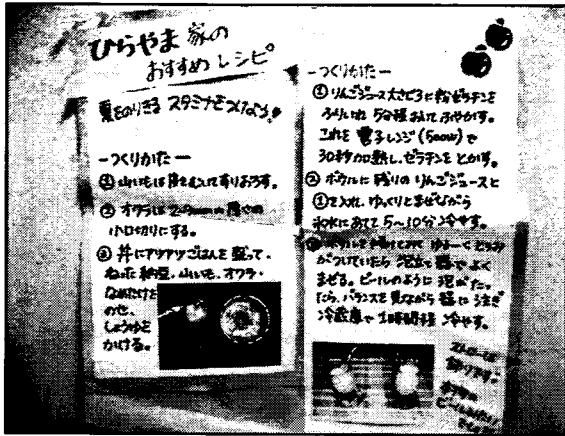 ひらやま家の
おすすめレシピ
夏をのりきる スタミナをつけよう!!
ーつくりかたー
① 山いもは皮をむいてすりおろす。
② オクラは2〜3mmの厚さの
小口切りにする。
③ 丼にアツアツごはんを盛って、
ねった納豆、山いも、オクラ・
なめたけを
のせ、
しょうゆを
かける。
ーつくりかたー
① りんごジュース大さじ3に粉ゼラチンを
ふりいれ 5分程おいてふやかす。
これを 電子レンジ(500W)で
30秒加熱し、ゼラチンをとかす。
② ボウルに残りのりんごジュースと
①を入れ、ゆっくりとまぜながら
氷水にあてて 5〜10分冷やす。
ゆるーくとろみ
がついていたら 泡立て器でよく
まぜる。ビールのように泡がたっ
たら、バランスを見ながら 器に注ぎ
冷蔵庫で1時間程 冷やす。